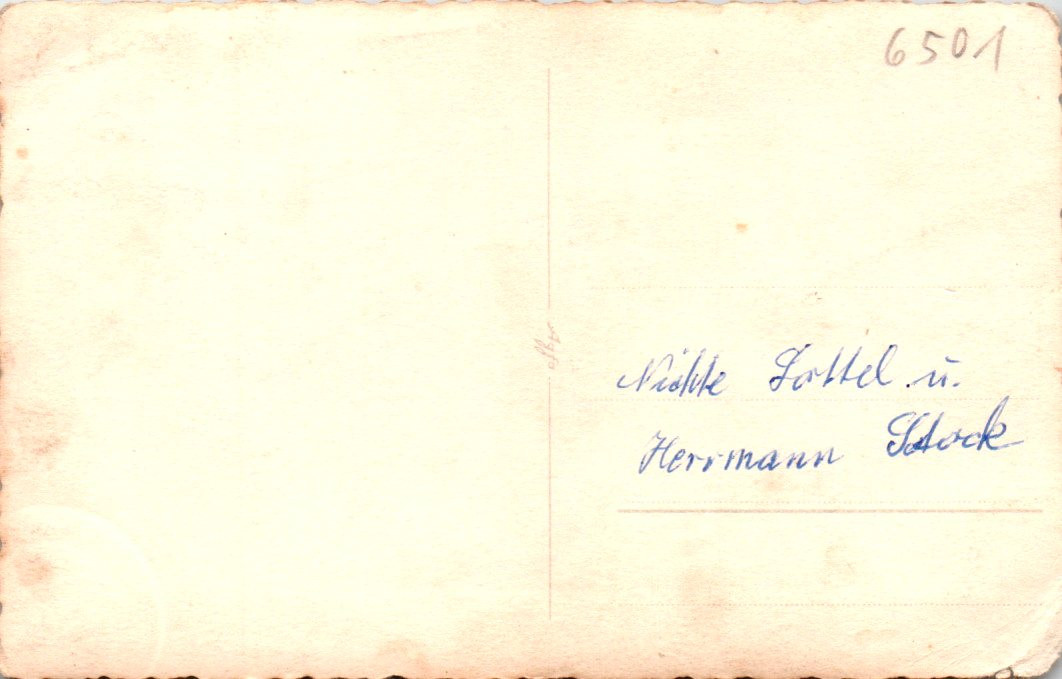 6501
Nichte Lottel u.
Herrmann Stock